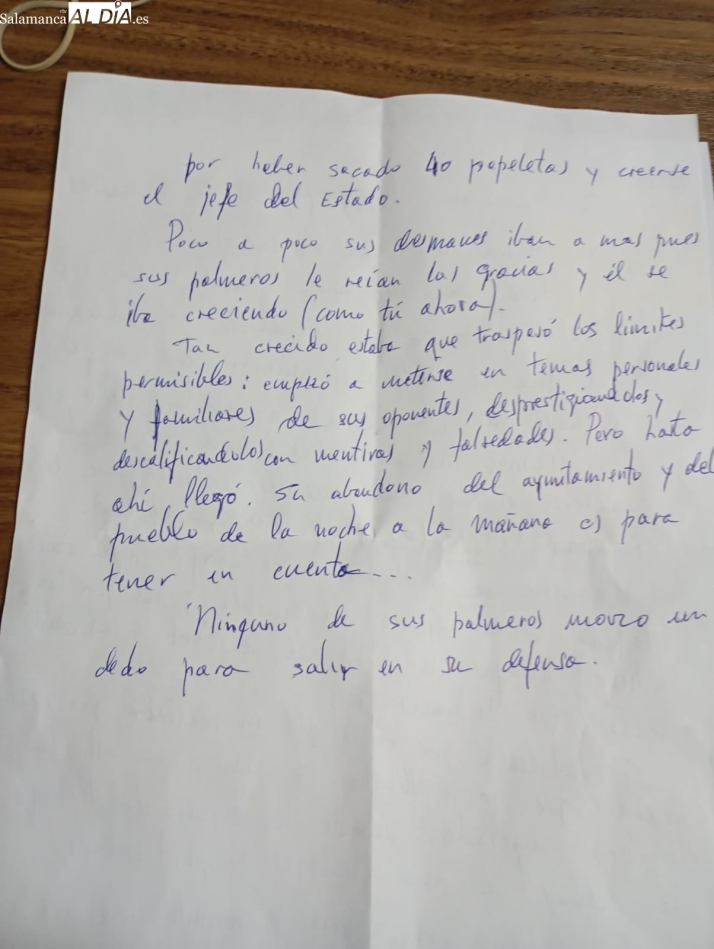 Salamanca AL DÍA.es
por haber sacado 40 papeletas y creerse
el jefe del Estado.
Poco a poco sus desmanes iban a mas pues
sus palmeros le reían las gracias y él se
iba creciendo (como tú ahora).
Tan crecido estaba que traspasó los límites
permisibles: empezó a meterse en temas personales
y familiares de sus oponentes, desprestigiandolos y
descalificandolos con mentiras y falsedades. Pero hasta
ahí llegó. Su abandono del ayuntamiento y del
pueblo de la noche a la mañana es para
tener en cuenta...
Ninguno de sus palmeros movio un
dedo para salir en su defensa.